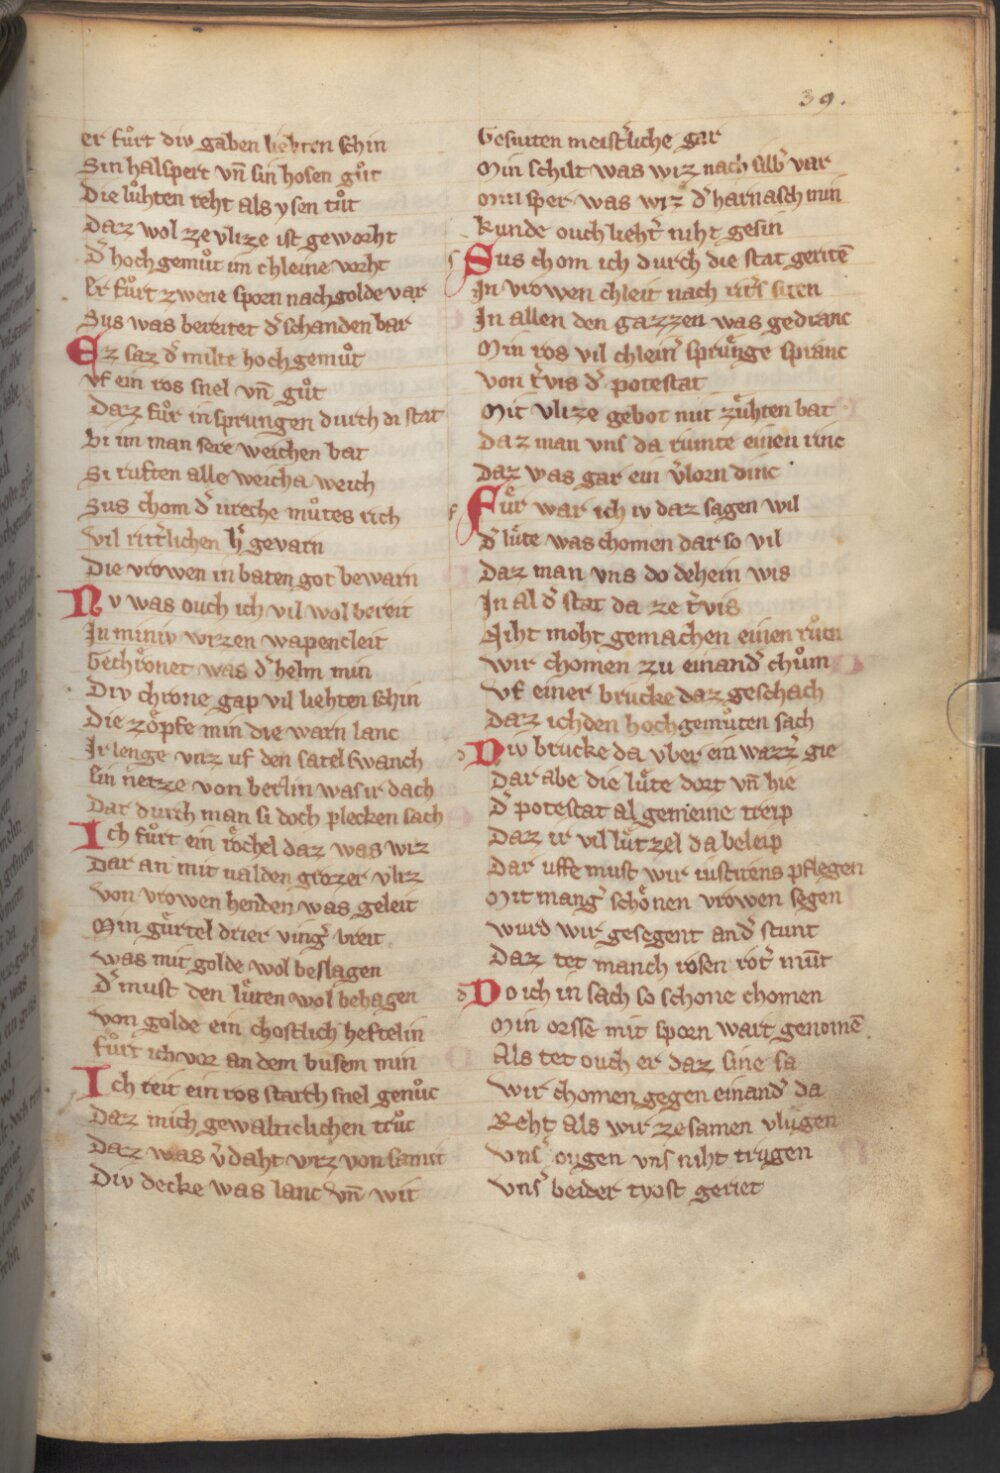 39.
er fůrt div gaben liehten schin
Sin halspert vn̄ sin hosen gůt
Die lůhten reht als ysen tůt
Daz wol ze vlize ist geworht
D͛ hochgemůt im chleine vorht
Er fůrt zwene sporn nach golde var
Sus was bereitet d͛ schanden bar
Ez saz d͛ milte hochgemůt
Vf ein ros snel vn̄ gůt
Daz fůr in sprungen durch di stat
Bi im man sere weichen bat
Si ruften alle weicha weich
Sus chom d͛ ureche můtes rich
Vil ritt͛lichen h͛ gevarn
Die vrowen in baten got bewarn
Nv was ouch ich vil wol bereit
In miniv wizen wapencleit
Gechrͤonet was d͛ helm min
Div chrone gap vil liehten schin
Die zoͤpfe min die warn lanc
Ir lenge vnz uf den satel swanch
Ein netze von berlin was ir dach
Dar durch man si doch plecken sach
Ich fůrt ein roͤchel daz was wiz
Dar an mit valden grozer vliz
von vrowen henden was geleit
Min guͤrtel drier ving͛ breit
was mit golde wol beslagen
D͛ must den luͤten wol behagen
von golde ein chostlich heftelin
fůrt ich vor an dem busem min
Ich reit ein ros starch snel genůc
Daz mich gewaltichlichen trůc
Daz was v͛daht wiz von samit
Div decke was lanc vn̄ wit
Gesniten meist͛liche gar
Min schilt was wiz nach silb͛ var
min sper was wiz d͛ harnasch min
Kunde ouch lieht͛ niht gesin
Sus chom ich durch die stat geritē
In vrowen chleit nach rit͛s siten
In allen den gazzen was gedranc
Min ros vil chlein͛ spruͤnge spranc
von t͛vis d͛ potestat
Mit vlize gebot mit zuͤhten bat
Daz man vns da rumte einen rinc
Daz was gar ein v͛lorn dinc
Fuͤr war ich iv daz sagen wil
d͛ luͤte was chomen dar so vil
Daz man vns do dehein wis
In al d͛ stat da ze t͛vis
Niht moht gemachen einen rům
wir chomen zu einand͛ chům
Vf einer brucke daz geschach
Daz ich den hochgemůten sach
Div brucke da vber ein wazz͛ gie
Dar abe die luͤte dort vn̄ hie
D͛ potestat al gemeine treip
Daz ir vil luͤtzel da beleip
Dar uffe must wir iustirens pflegen
Mit mang͛ schoͤnen vrowen segen
wurd wir gesegent and͛ stunt
Daz tet manch rosen rot͛ mūt
Do ich in sach so schone chomen
Min orsse mit sporn wart genomē
Als tet ouch er daz sine sa
wir chomen gegen einand͛ da
Reht als wir zesamen vlugen
vns͛ ougen vns niht trugen
vns͛ beider tyost geriet